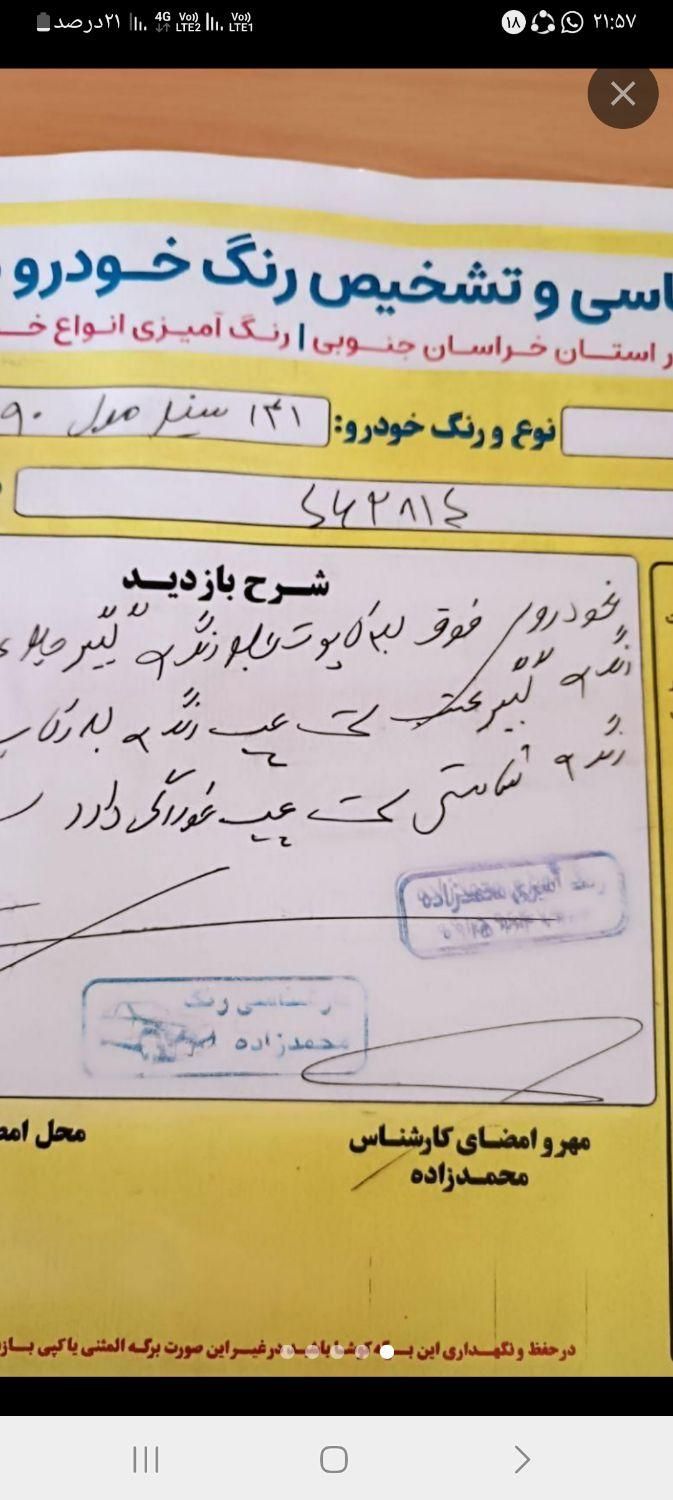 ۲۱درصد 4G Vo) LTE2 Vo) LTE1 ۱۸ ۲۱:۵۷
اسی و تشخیص رنگ خودرو
ر استان خراسان جنوبی | رنگ آمیزی انواع خـ
نوع و رنگ خودرو: ۱۳۱ سفید مدل ۹۰
شرح بازدید
خودرو فوق لبه کاپوت جلو رنگ و گلگیر جلو
رنگ و گلگیر عقب سمت چپ رنگ و له رکاب
رنگ و شاسی سمت چپ خوردگی دارد
رنگ آمیزی محمدزاده
کارشناسی رنگ
محمدزاده
مهر و امضای کارشناس
محل امض
محمدزاده
در حفظ و نگهداری این برگه کوشا باشید در غیر این صورت برگه المثنی یا کپی باز